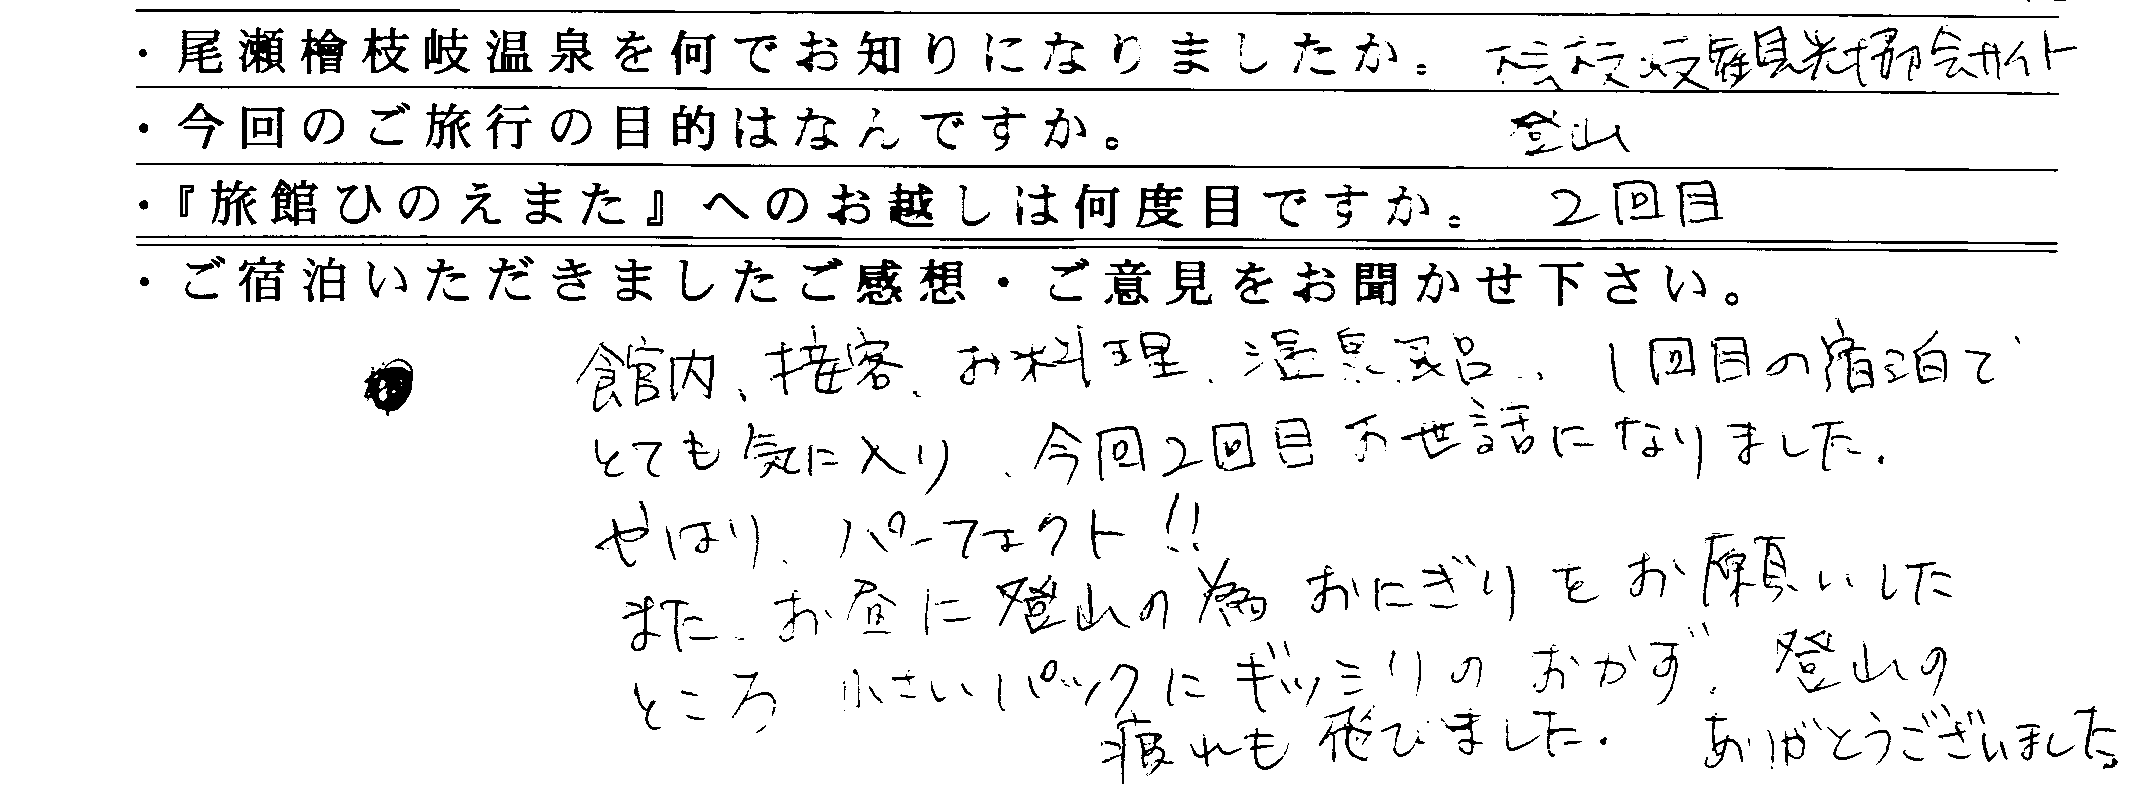 ・尾瀬檜枝岐温泉を何でお知りになりましたか。 桧枝岐観光協会サイト
・今回のご旅行の目的はなんですか。 登山
・『旅館ひのえまた』へのお越しは何度目ですか。 2回目
・ご宿泊いただきましたご感想・ご意見をお聞かせ下さい。
館内、接客、お料理、温泉風呂、1回目の宿泊で
とても気に入り、今回2回目お世話になりました。
やはり、パーフェクト!!
また、お昼に登山の為おにぎりをお願いした
ところ 小さいパックにギッシリのおかず、登山の
疲れも飛びました。 ありがとうございました。